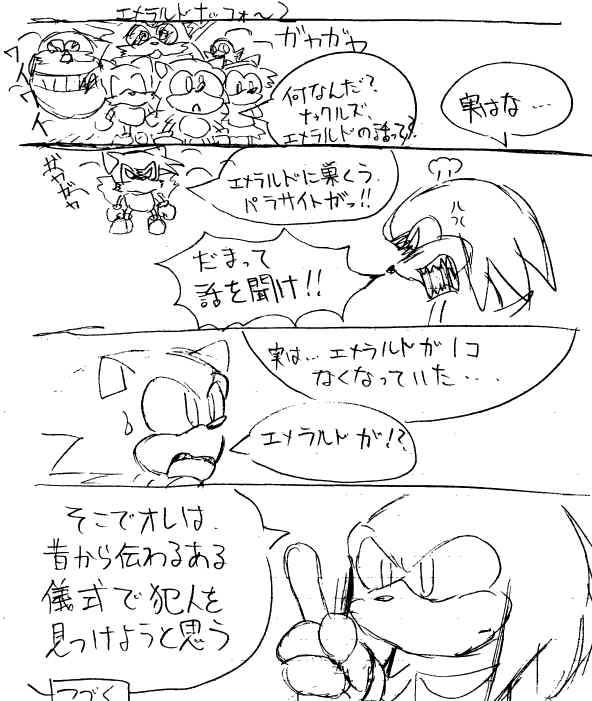 エメラルドだっフォ〜2
ワイワイ
ガヤガヤ
何なんだ?
ナックルズ、
エメラルドの話って?
実はな…
ガヤガヤ
エメラルドに巣くう
パラサイトがっ!!
だまって
話を聞け!!
実は… エメラルドが1コ
なくなっていた・・・
エメラルドが!?
そこでオレは、
昔から伝わるある
儀式で犯人を
見つけようと思う
つづく